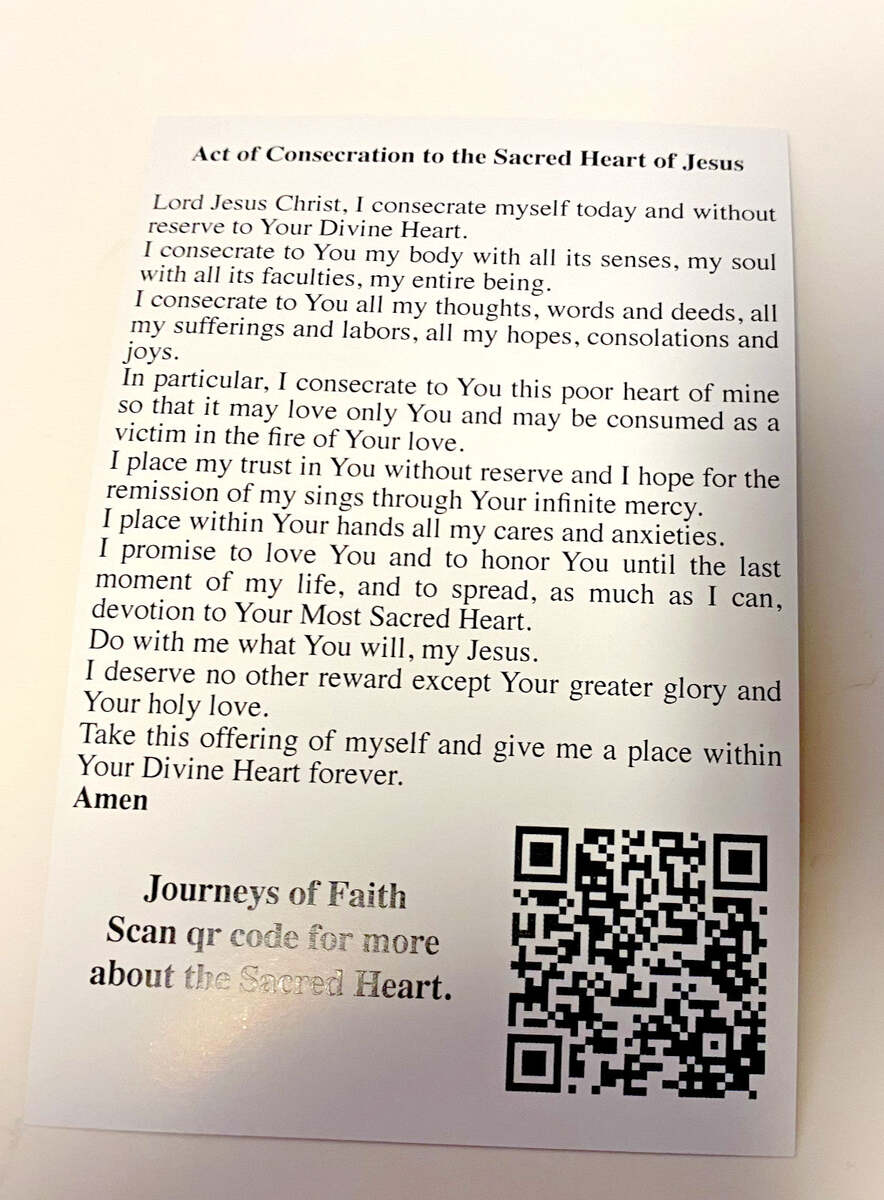 Act of Consecration to the Sacred Heart of Jesus
Lord Jesus Christ, I consecrate myself today and without
reserve to Your Divine Heart.
I consecrate to You my body with all its senses, my soul
with all its faculties, my entire being.
I consecrate to You all my thoughts, words and deeds, all
my sufferings and labors, all my hopes, consolations and
joys.
In particular, I consecrate to You this poor heart of mine
so that it may love only You and may be consumed as a
victim in the fire of Your love.
I place my trust in You without reserve and I hope for the
remission of my sings through Your infinite mercy.
I place within Your hands all my cares and anxieties.
I promise to love You and to honor You until the last
moment of my life, and to spread, as much as I can,
devotion to Your Most Sacred Heart.
Do with me what You will, my Jesus.
I deserve no other reward except Your greater glory and
Your holy love.
Take this offering of myself and give me a place within
Your Divine Heart forever.
Amen
Journeys of Faith
Scan qr code for more
about the Sacred Heart.